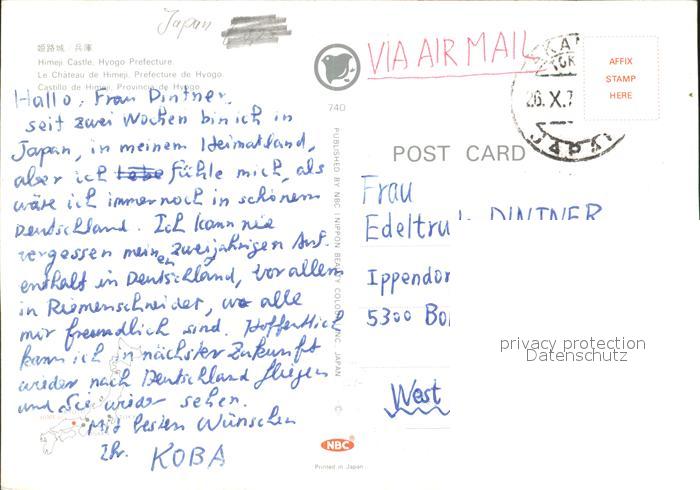 Japan
姫路城・兵庫
Himeji Castle, Hyogo Prefecture.
Le Château de Himeji, Prefecture de Hyogo.
Castillo de Himeji, Provincia de Hyogo
Hallo, Frau Dintner.
seit zwei Wochen bin ich in
Japan, in meinem Heimatland,
aber ich fühle mich, als
wäre ich immer noch in schönem
Deutschland. Ich kann nie
vergessen meinen zweijährigen Auf-
enthalt in Deutschland, vor allem
in Riemenschneider, wo alle
mir freundlich sind. Hoffentlich
kann ich in nächster Zukunft
wieder nach Deutschland fliegen
und Sie wieder sehen.
Mit besten Wünschen
Ihr. KOBA
740
PUBLISHED BY NBC (NIPPON BEAUTY COLOR) INC. JAPAN
NBC
Printed in Japan
VIA AIR MAIL
26.X.7
JAPAN
AFFIX
STAMP
HERE
POST CARD
Frau
Edeltru DINTNER
Ippendor
5300 Bo
West
privacy protection
Datenschutz